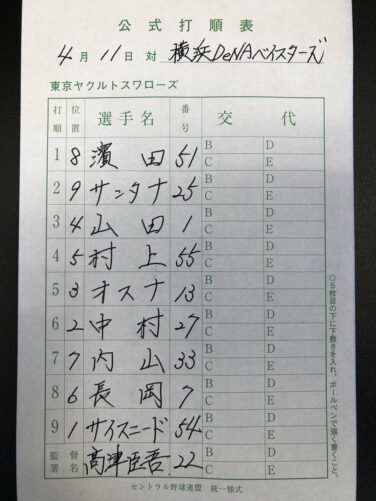 公式打順表
4月11日 対 横浜DeNAベイスターズ
東京ヤクルトスワローズ
打順 位置 選手名 番号 交代
1 8 濱田 51 B D C E
2 9 サンタナ 25 B D C E
3 4 山田 1 B D C E
4 5 村上 55 B D C E
5 3 オスナ 13 B D C E
6 2 中村 27 B D C E
7 7 内山 33 B D C E
8 6 長岡 7 B D C E
9 1 サイスニード 54 B D C E
監督署名 高津臣吾 22
セントラル野球連盟 統一様式
◎5枚目の下に下敷きを入れ、ボールペンで強く書くこと。